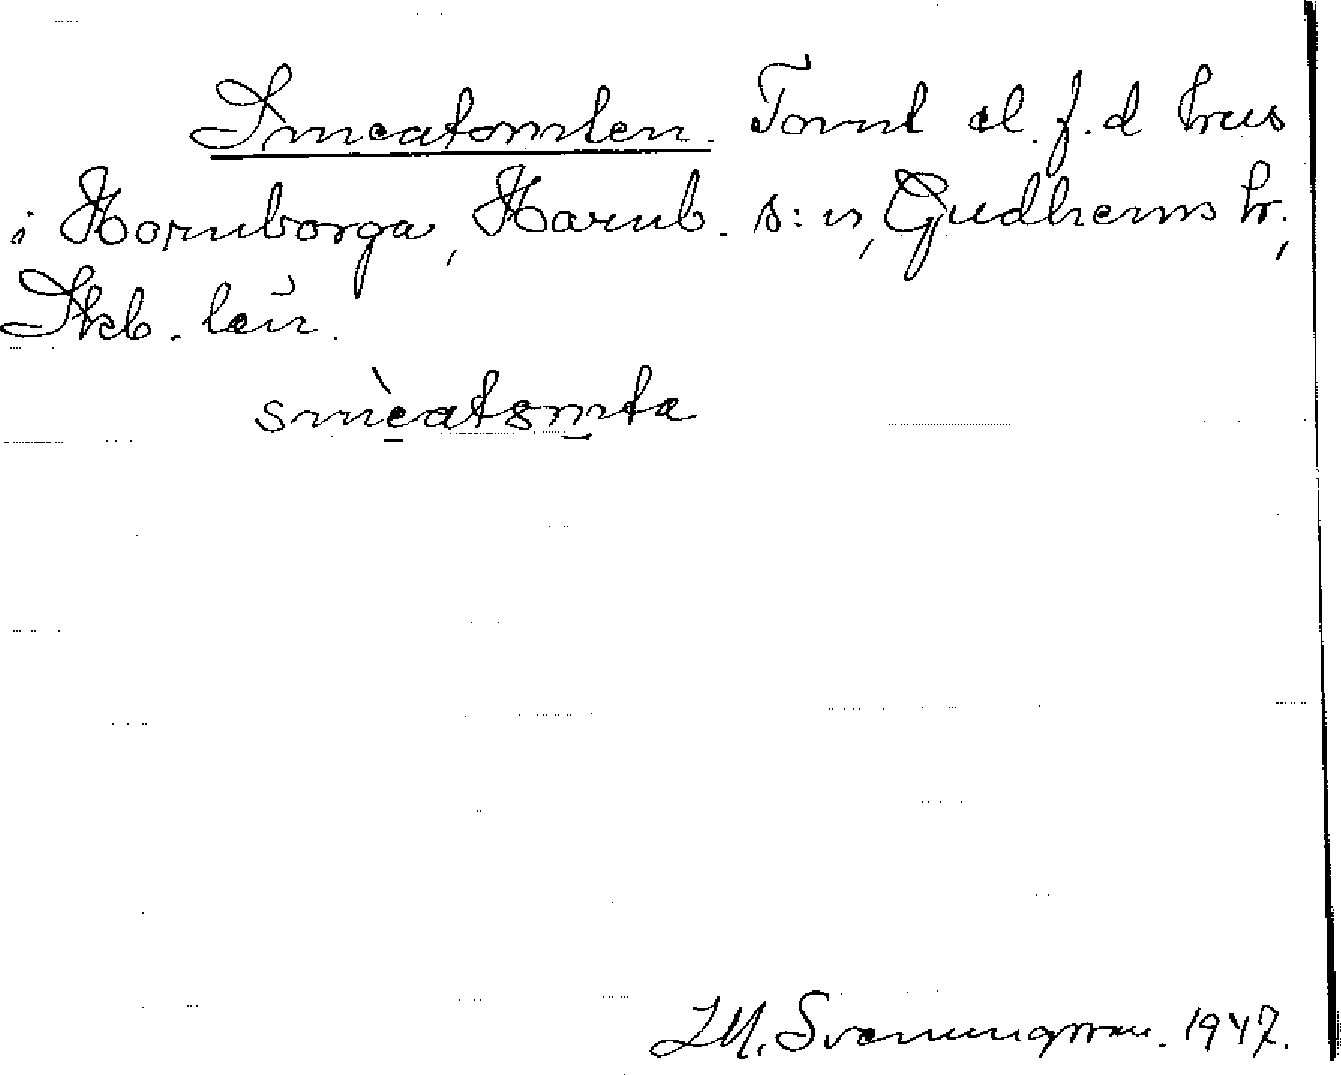 Smeatomten. Tomt el. f.d hus
i Hornborga, Hornb. s:n, Gudhems hr.,
Skb. län.
smèatomta
I.M. Svenungsson. 1947.